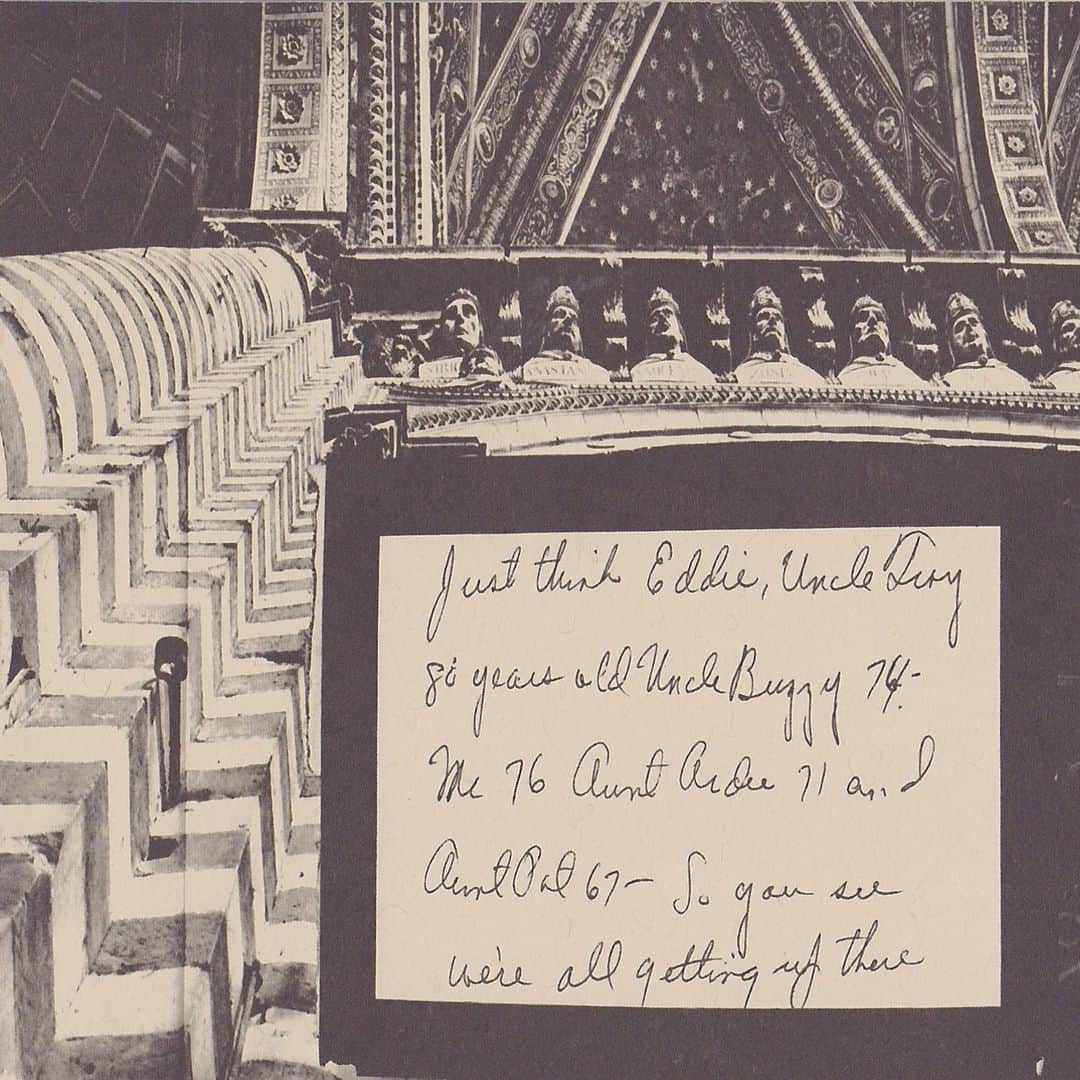 Just think Eddie, Uncle
years old Uncle Buzzy 74-
Me 76 Aunt Ardee 71 and
Aunt Pat 67 – So you see
we're all getting up there